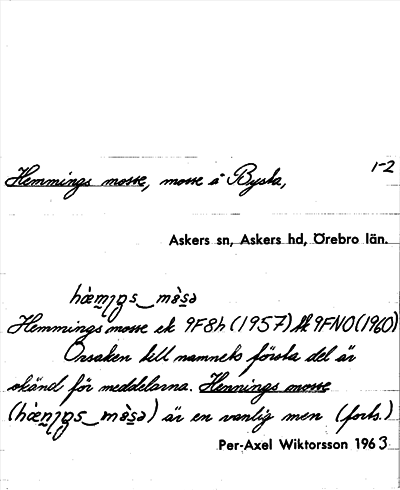 1-2
Hemmings mosse, mosse å Bysta,
Askers sn, Askers hd, Örebro län.
hæ̀mıŋs mɵ̀sə
Hemmings mosse ek 9F8h (1957), 9FNO (1960)
Orsaken till namnets första del är
okänd för meddelarna. Hennings mosse
(hæ̀nıŋs mɵ̀sə) är en vanlig men (forts.)
Per-Axel Wiktorsson 1963